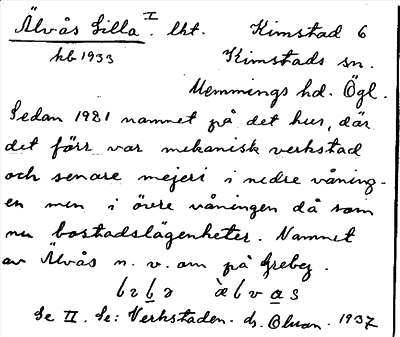 Älvås Lilla I. lht. Kimstad 6
kb 1933 Kimstads sn.
Memmings hd. Ögl.
Sedan 1921 namnet på det hus, där
det förr var mekanisk verkstad
och senare mejeri i nedre våning-
en men i övre våningen då som
nu bostadslägenheter. Namnet
av Älvås n. v. om på Grebez.
Se II. Se: Verkstaden. 1937